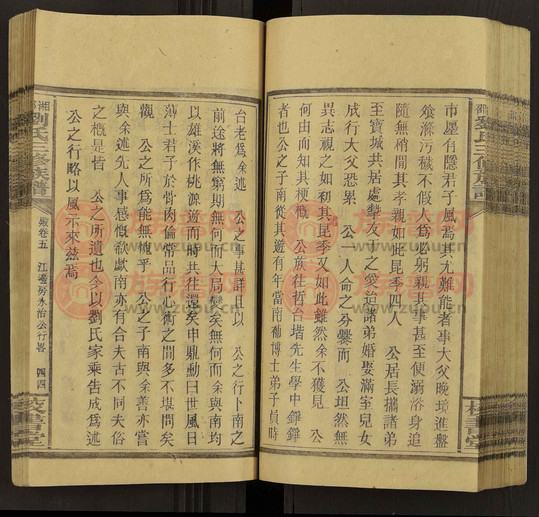 邵劉氏三修族譜
校書堂
市屋有隱君子風焉其尤難能者事大父晚進盤
飧滌污穢不假人爲必躬親其事甚至便溺浴身追
隨無稍間其孝親如此昆季四人 公居長攜諸弟
至寶城共居處擊友于之愛迨諸弟婚娶滿室兒女
成行大父恐累 公一人命之分爨而 公坦然無
異志視之如初其昆季又如此雖然余不獲見 公
何由而知其梗概 公族往哲台堦先生學中錚錚
者也公之子南從其遊有年當南補博士弟子員時
台老爲余述 公之事甚詳且以 公之行卜南之
前途將無窮期無何而大局變矣無何而余與南均
以雄溪作桃源遊而時共往還矣申勳曰世風日
薄士君子於骨肉倫常品行心術之間多不堪問矣
觀 公之所爲能無愧乎 公之子南與余善亦嘗
與余述先人事感慨欷歔南亦有合夫古不同夫俗
之概是皆 公之所遺也今以劉氏家乘告成爲述
公之行略以風示來茲焉
湘邵劉氏三修族譜
卷五 江邊房永治公行畧 四四
校書堂
族譜网
www.zupu.cn